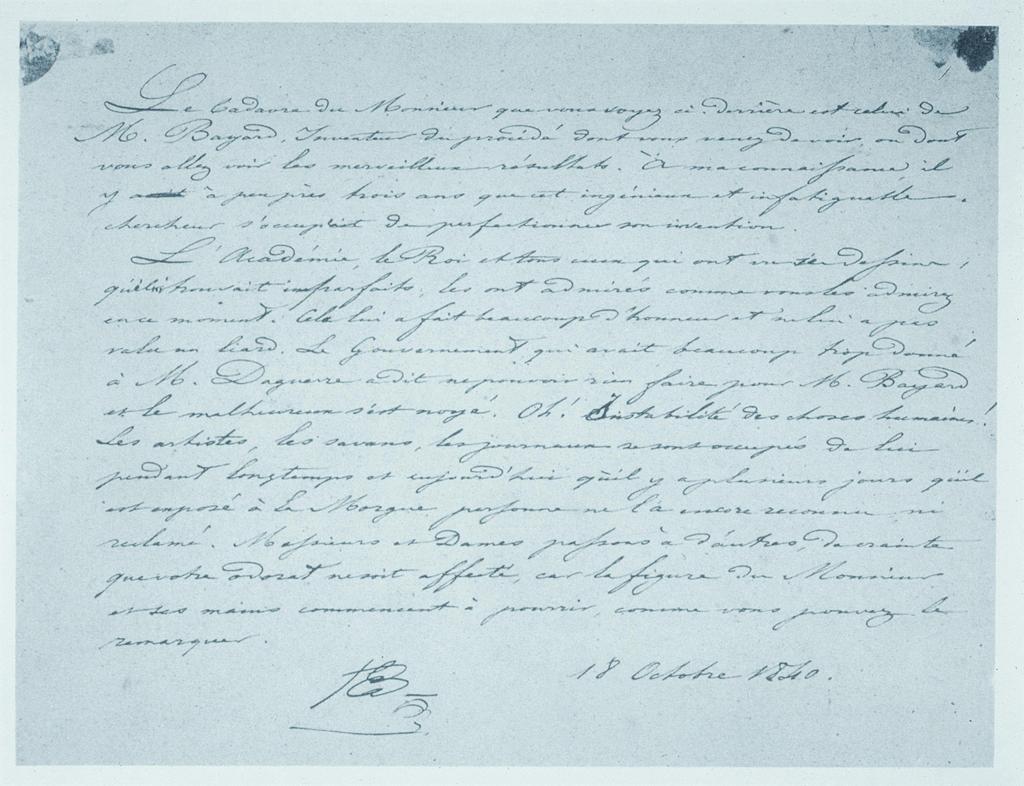 Le Cadavre du Monsieur que vous voyez ci-derrière est celui de
M. Bayard, Inventeur du procédé dont vous venez de voir, ou dont
vous allez voir les merveilleux résultats. À ma connaissance, il
y a à peu près trois ans que cet ingénieux et infatigable
chercheur s'occupait de perfectionner son invention.
L'Académie, le Roi et tous ceux qui ont vu ses dessins,
qu'il trouvait imparfaits, les ont admirés comme vous les admirez
en ce moment. Cela lui a fait beaucoup d'honneur et ne lui a pas
valu un liard. Le Gouvernement, qui avait beaucoup trop donné
à M. Daguerre a dit ne pouvoir rien faire pour M. Bayard
et le malheureux s'est noyé. Oh! Instabilité des choses humaines!
Les artistes, les savans, les journaux se sont occupés de lui
pendant longtemps et aujourd'hui qu'il y a plusieurs jours qu'il
est exposé à la Morgue personne ne l'a encore reconnu, ni
réclamé. Messieurs et Dames, passons à d'autres, de crainte
que votre odorat ne soit affecté, car la figure du Monsieur
et ses mains commencent à pourrir, comme vous pouvez le
remarquer.
18 Octobre 1840.